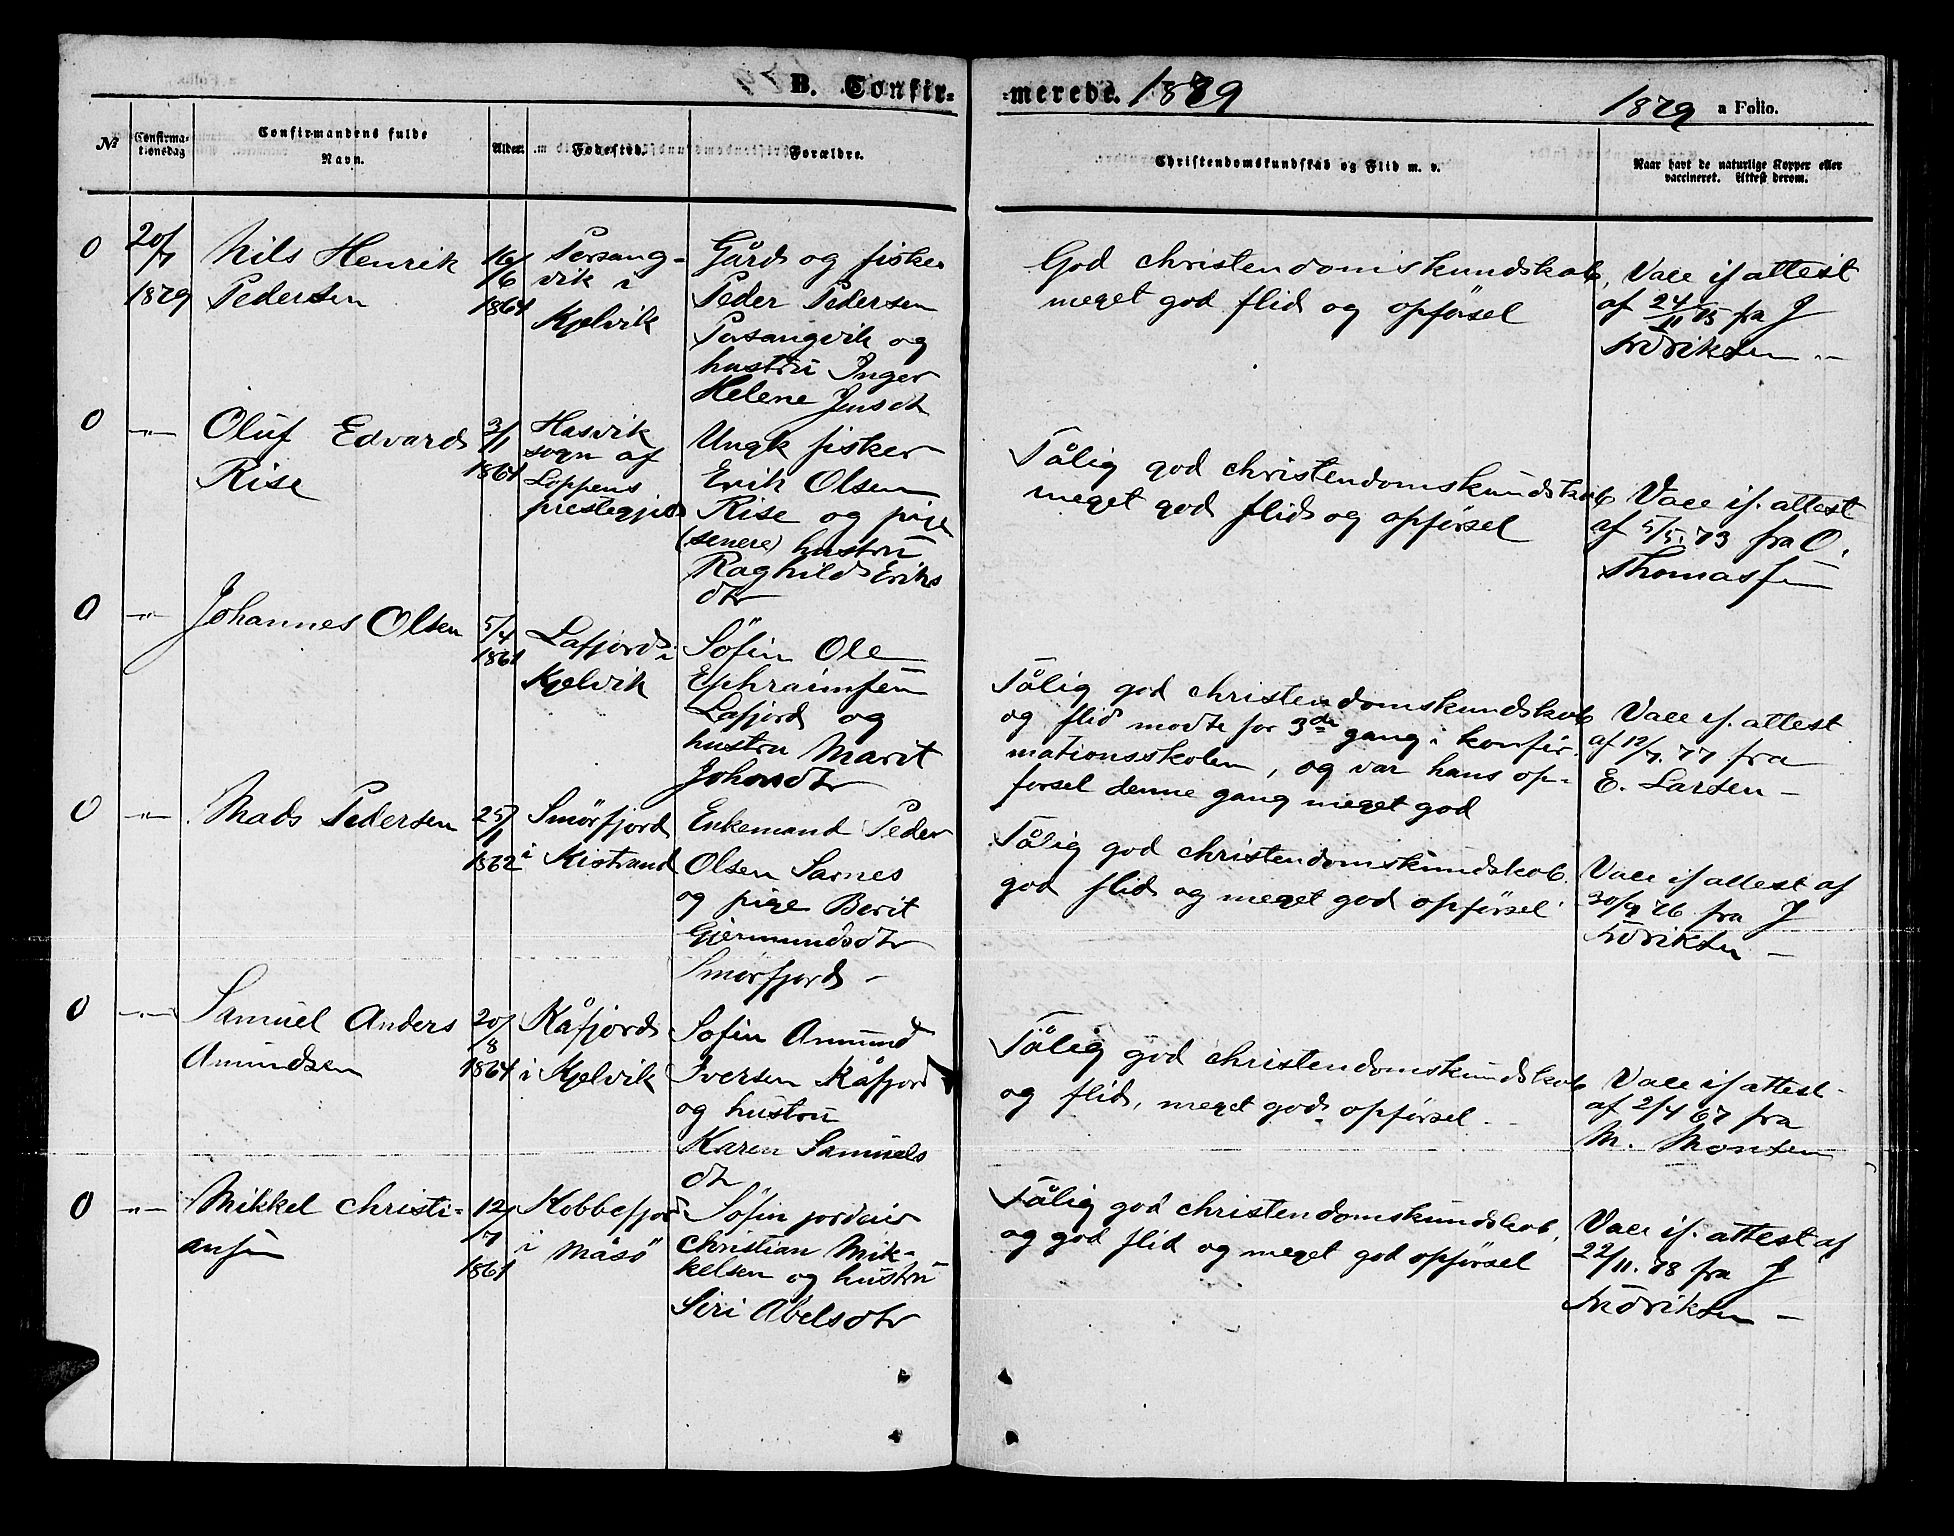 B. Confir=
=merede. 1879
1879 a Folio.
No
Confirma-
tionsdag
Confirmandens fulde
Navn.
Alder.
Fødested.
Forældre.
Christendomskundskab og Flid m. v.
Naar havt de naturlige Kopper eller
vaccineret. Attest derom.
0
20/7
1879
Nils Henrik
Pedersen
16/6
1864
Porsang-
vik i
Kjelvik
Gårdb og fisker
Peder Pedersen
Porsangvik og
hustru Inger
Helene Jensdtr
God christendomskundskab,
meget god flid og opførsel
Vacc if attest
af 24/11 75 fra J
Fredriksen -
0
-"-
Oluf Edvard
Rise
3/11
1864
Hasvik
sogn af
Loppens
prestegjeld
Ungk fisker
Erik Olsen
Rise og pige
(senere) hustru
Raghild Eriks
dtr
Tålig god christendomskundskab
meget god flid og opførsel
Vacc if. attest
af 5/5. 73 fra O.
Thomassen
0
-"-
Johannes Olsen
5/4
1861
Lafjord i
Kjelvik
Søfin Ole
Ephraimsen
Lafjord og
hustru Marit
Johnsdtr
Tålig god christendomskundskab
og flid mødte for 3de gang i konfir-
mationsskolen, og var hans op-
førsel denne gang meget god
Vacc if. attest
af 12/7. 77 fra
E. Larsen -
0
-"-
Mads Pedersen
25/1
1862
Smørfjord
i Kistrand
Enkemand Peder
Olsen Sarnes
og pige Berit
Gjermundsdtr
Smørfjord -
Tålig god christendomskundskab.
god flid og meget god opførsel.
Vacc if attest af
30/9 76 fra J
Fredriksen -
0
-"-
Samuel Anders
Amundsen
20/8
1864
Kåfjord
i Kjelvik
Søfin Amund
Iversen Kåfjord
og hustru
Karen Samuels
dtr
Tålig god christendomskundskab
og flid, meget god opførsel.
Vacc if attest
af 2/4 67 fra
M. Monsen
0
-"-
Mikkel Christi-
ansen
12/7
1861
Kobbefjord
i Måsø
Søfin jordeier
Christian Mik-
kelsen og hustru
Siri Abelsdtr
Tålig god christendomskundskab,
og god flid og meget god opførsel
Vacc if. attest af
22/11. 78 fra J
Fredriksen -